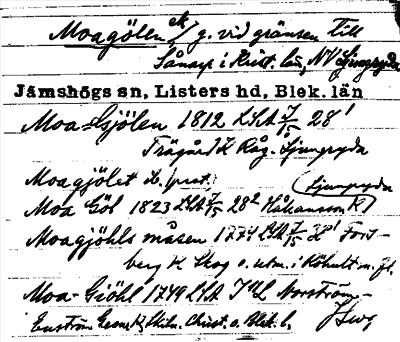 Moagölen ek/g. vid gränsen till
Sånarp i Krist. län, NV Ljungryda
Jämshögs sn, Listers hd, Blek. län
Moa-Gjölen 1812 LSA 7/15 28¹
Trägård K Råg. Ljungryda
Moagjölet
Moa Göl 1823 LSA 7/15 28² Håkansson K (Ljungryda)
Moagjöhls måsen 1774 LSA 7/15 Fors-
berg K Skog o. utm. i
Moa-Giöhl 1749 LSA Norström-
Enström Geom. K, Skån. Christ. o. Blek. l.